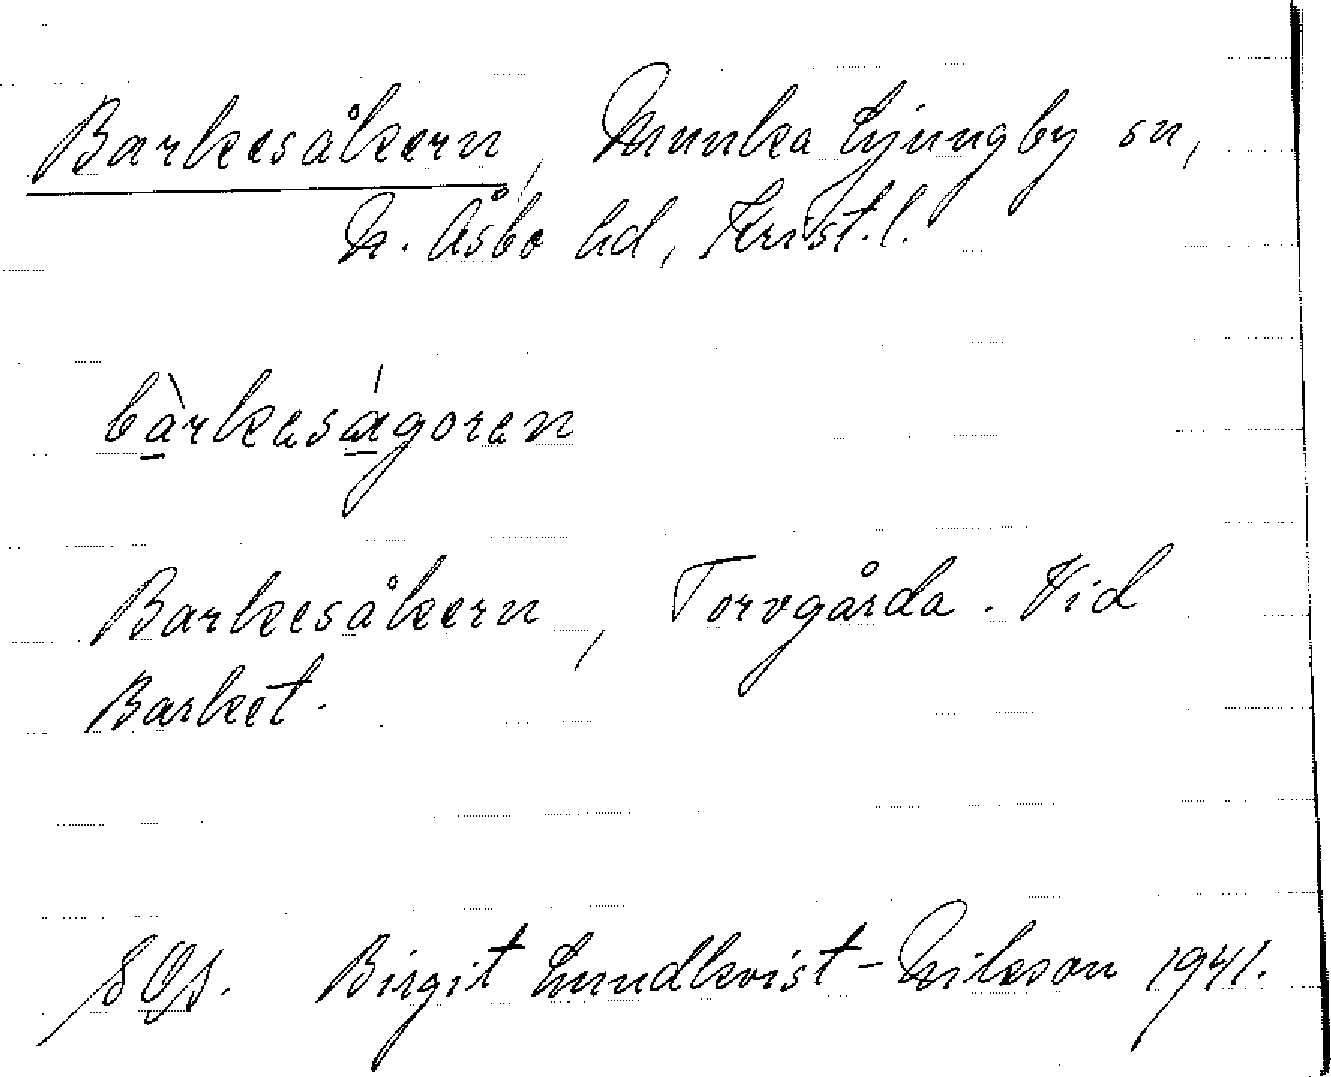 Barkesåkern, Munka Ljungby sn,
N. Åsbo hd, Krist. l.
bàrkeságoren
Barkesåkern, Torvgårda. Vid
Barket.
Birgit Lundkvist-Nilsson 1941.